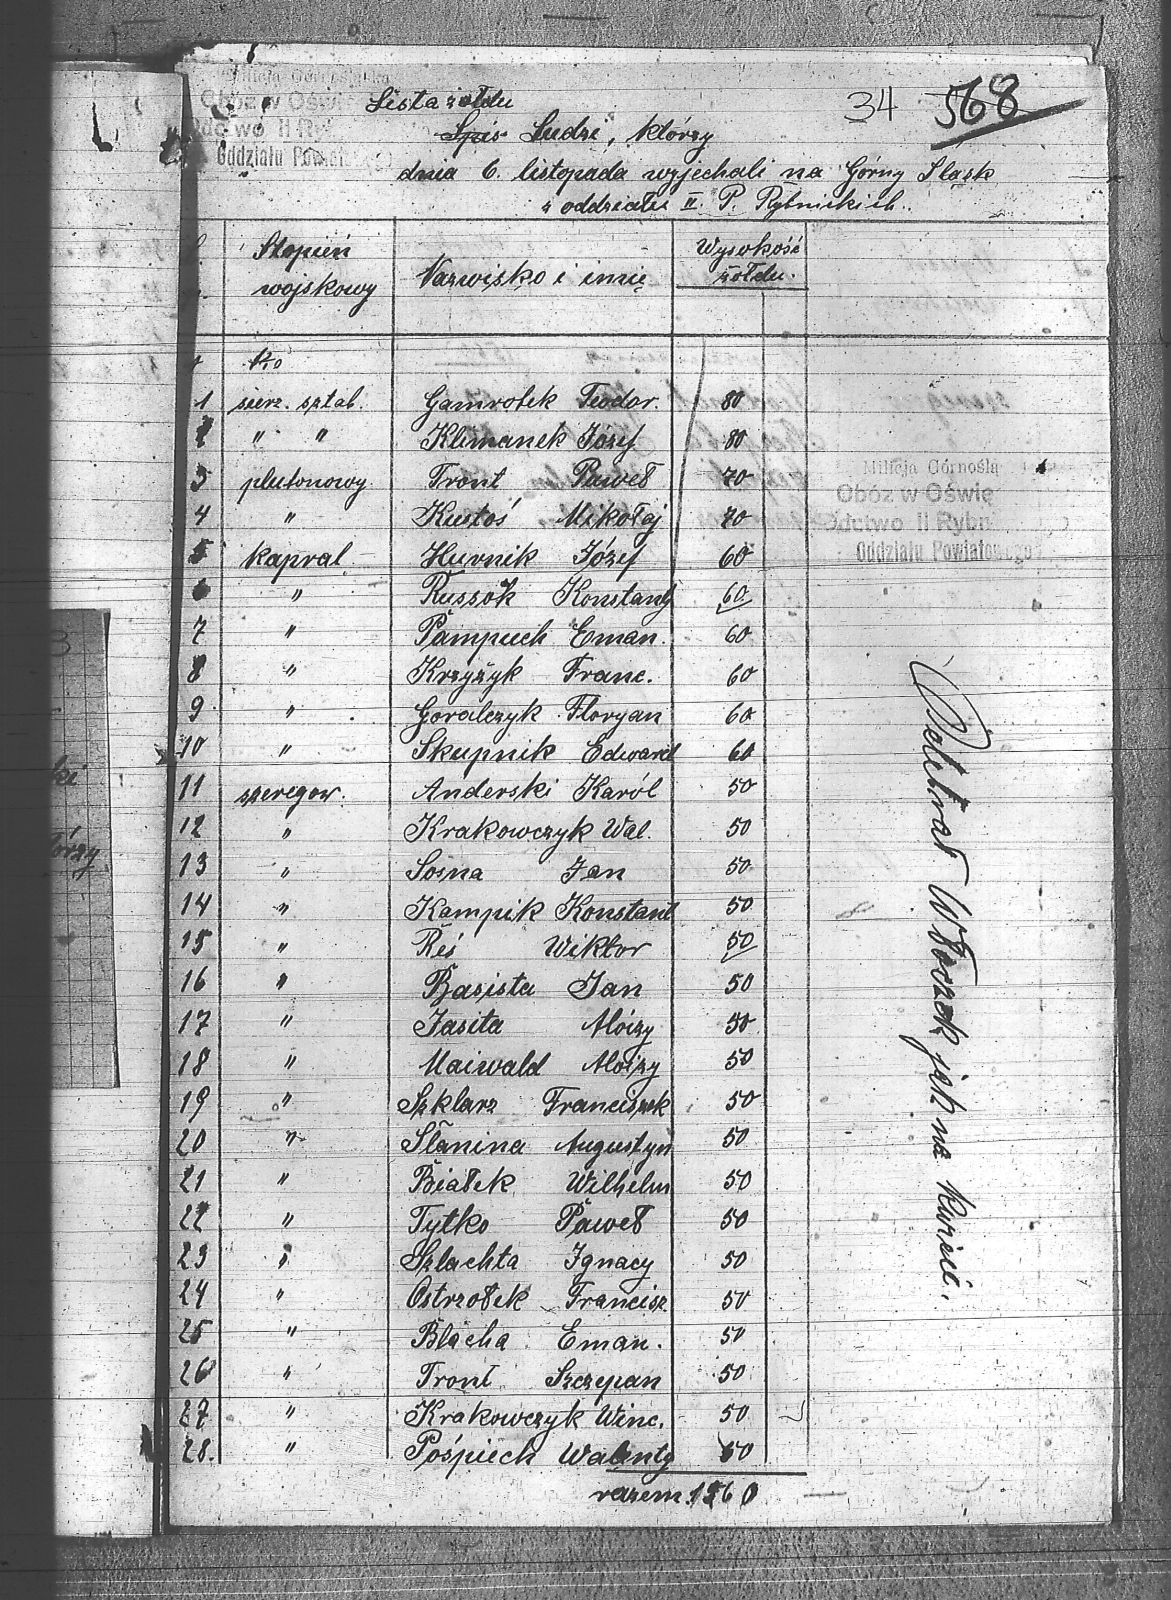 Milicja Górnośląska
Obóz w Oświę
II Ryb
Oddziału Powiato
34 568
Lista żołdu
Spis Ludzi, którzy
dnia 6. listopada wyjechali na Górny Śląsk
z oddziału II. P. Rybnickich.
Stopień wojskowy Nazwisko i imię Wysokość żołdu.
1 sierz. sztab. Gamrotek Teodor. 80
2 " " Klimanek Józef 80
3 plutonowy Tront Paweł 70
4 " Kustoś Mikołaj 70
5 kapral Hurnik Józef 60
6 " Russok Konstanty 60
7 " Pampuch Eman. 60
8 " Krzyżyk Franc. 60
9 " Goralczyk Floryan 60
10 " Skupnik Edward 60
11 szeregow. Anderski Karól 50
12 " Krakowczyk Wal. 50
13 " Sosna Jan 50
14 " Kampik Konstant 50
15 " Reś Wiktor 50
16 " Basista Jan 50
17 " Jasita Alóizy 50
18 " Maiwald Aloizy 50
19 " Szklarz Franciszek 50
20 " Słanina Augustyn 50
21 " Białek Wilhelm 50
22 " Tytko Paweł 50
23 " Szlachta Ignacy 50
24 " Ostrzołek Francisz. 50
25 " Blacha Eman. 50
26 " Tront Szczepan 50
27 " Krakowczyk Winc. 50
28. " Pośpiech Walenty 50
razem 1560
Milicja Górnoślą
Obóz w Oświę
dctwo II Rybn
Oddziału Powiatowego
Odebrał Włoczek jak na kwicie.